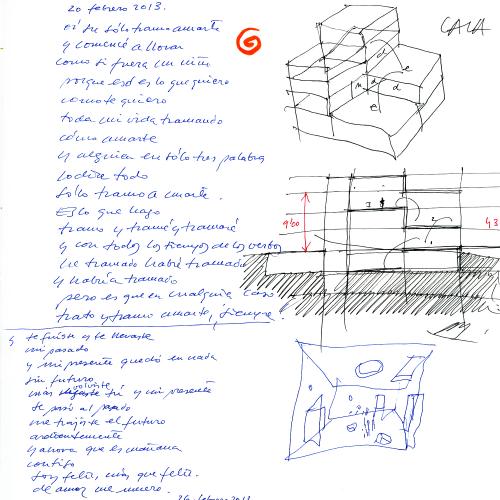 20 febrero 2013.
oí tu sólo tramo amarte
y comencé a llorar
como si fuera un niño
porque eso es lo que quiero
como te quiero
toda mi vida tramando
cómo amarte
y alguien en sólo tres palabras
lo dice todo
sólo tramo amarte.
Es lo que hago
tramo y tramé y tramaré
y con todos los tiempos de los verbos
he tramado habré tramado
y habría tramado
pero es que en cualquier caso
trato y tramo amarte, siempre.
te fuiste y te llevaste
mi pasado
y mi presente quedó en nada
sin futuro
más volviste tú y mi presente
se pasó al pasado
me trajiste el futuro
ardientemente
y ahora que es mañana
contigo
soy feliz, más que feliz.
de amor me muero.
26 febrero 2013
CALA
d
e
n
d
d
e
900